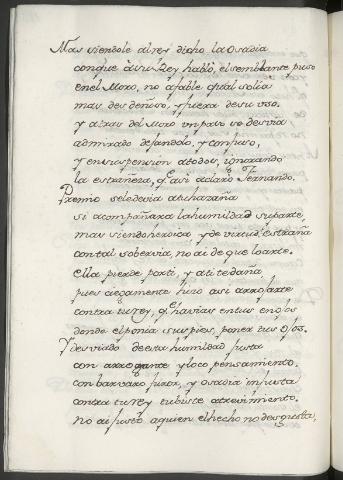 Mas viendole al rey dicho la Osadia
conque à su Rey hablò, el semblante puso
en el Moro, no afable qual solia
mas desdeñoso, y fuera de su uso.
y atras del Moro un paso se desvia
admirado dejandolo, y confuso,
y en suspension a todos, ignorando
la estrañeza, q.e asi aclarò Fernando.
Premio se le devia a tu hazaña
si acompañara la humildad su parte,
mas siendo heroica y de virtud, estraña
con tal sobervia, no ai de que loarte.
ella pierde por ti, y a ti te daña,
pues ciegamente hizo asi arrojarte
contra tu rey, q.e havias en tus enojos
donde el ponia sus pies, poner tus Ojos.
Y desviado de esta humildad justa
con arrogante y loco pensamiento.
con barvaro furor, y osadia injusta
contra tu rey tubiste atrevimiento.
no ai justo a quien el hecho no desgusta,